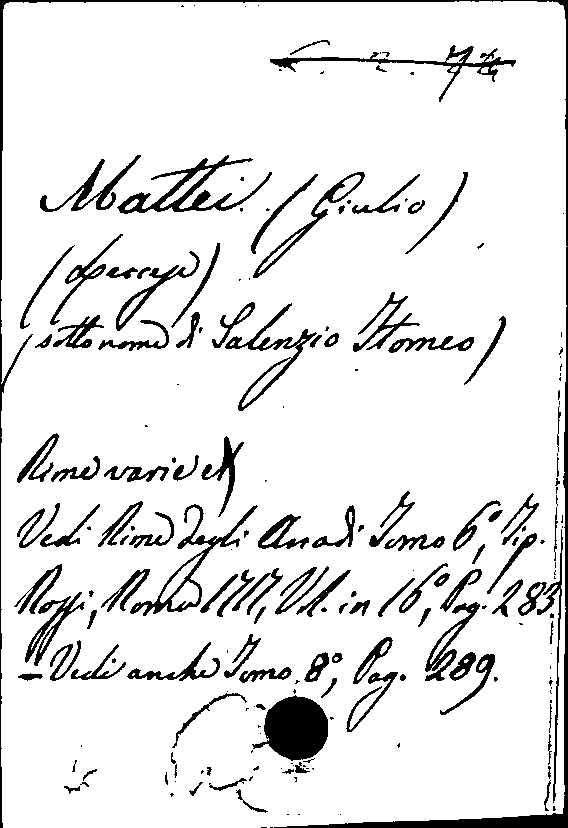 Mattei. (Giulio)
(sotto nome di Salenzio Itomeo)
Rime varie
Vedi Rime degli Arcadi Tomo 6º, Tip.
Rossi, Roma 1717, Vol. in 16º, Pag. 283.
– Vedi anche Tomo 8º, Pag. 289.